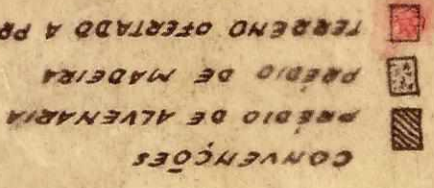 CONVENÇÕES
PRÉDIO DE ALVENARIA
PRÉDIO DE MADEIRA
TERRENO OFERTADO A PR